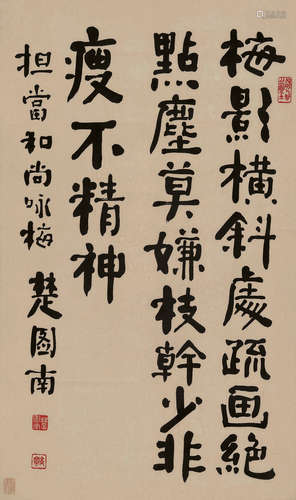 梅影橫斜處疏画絕
點塵莫嫌枝幹少非
瘦不精神
担當和尚咏梅 楚圖南